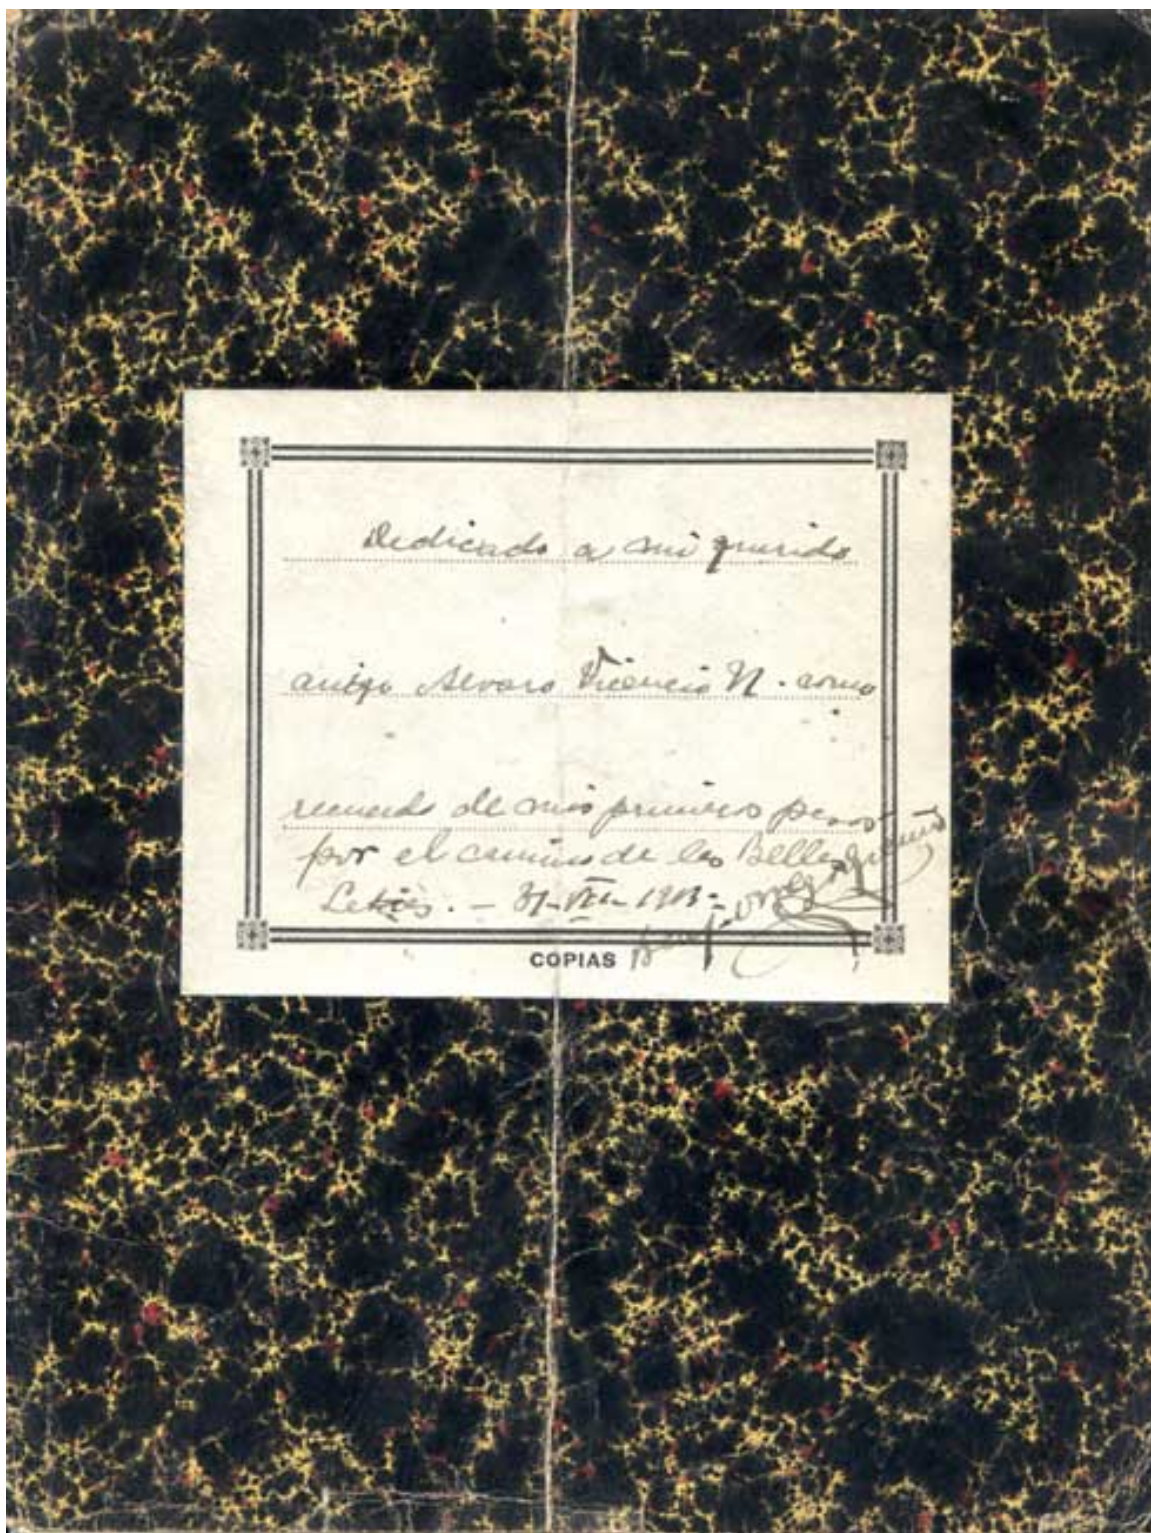 Dedicado a mi querido
amigo Alvaro Vicencio N. como
recuerdo de mis primeros pasos
por el camino de las Bellas
Letras. -
COPIAS